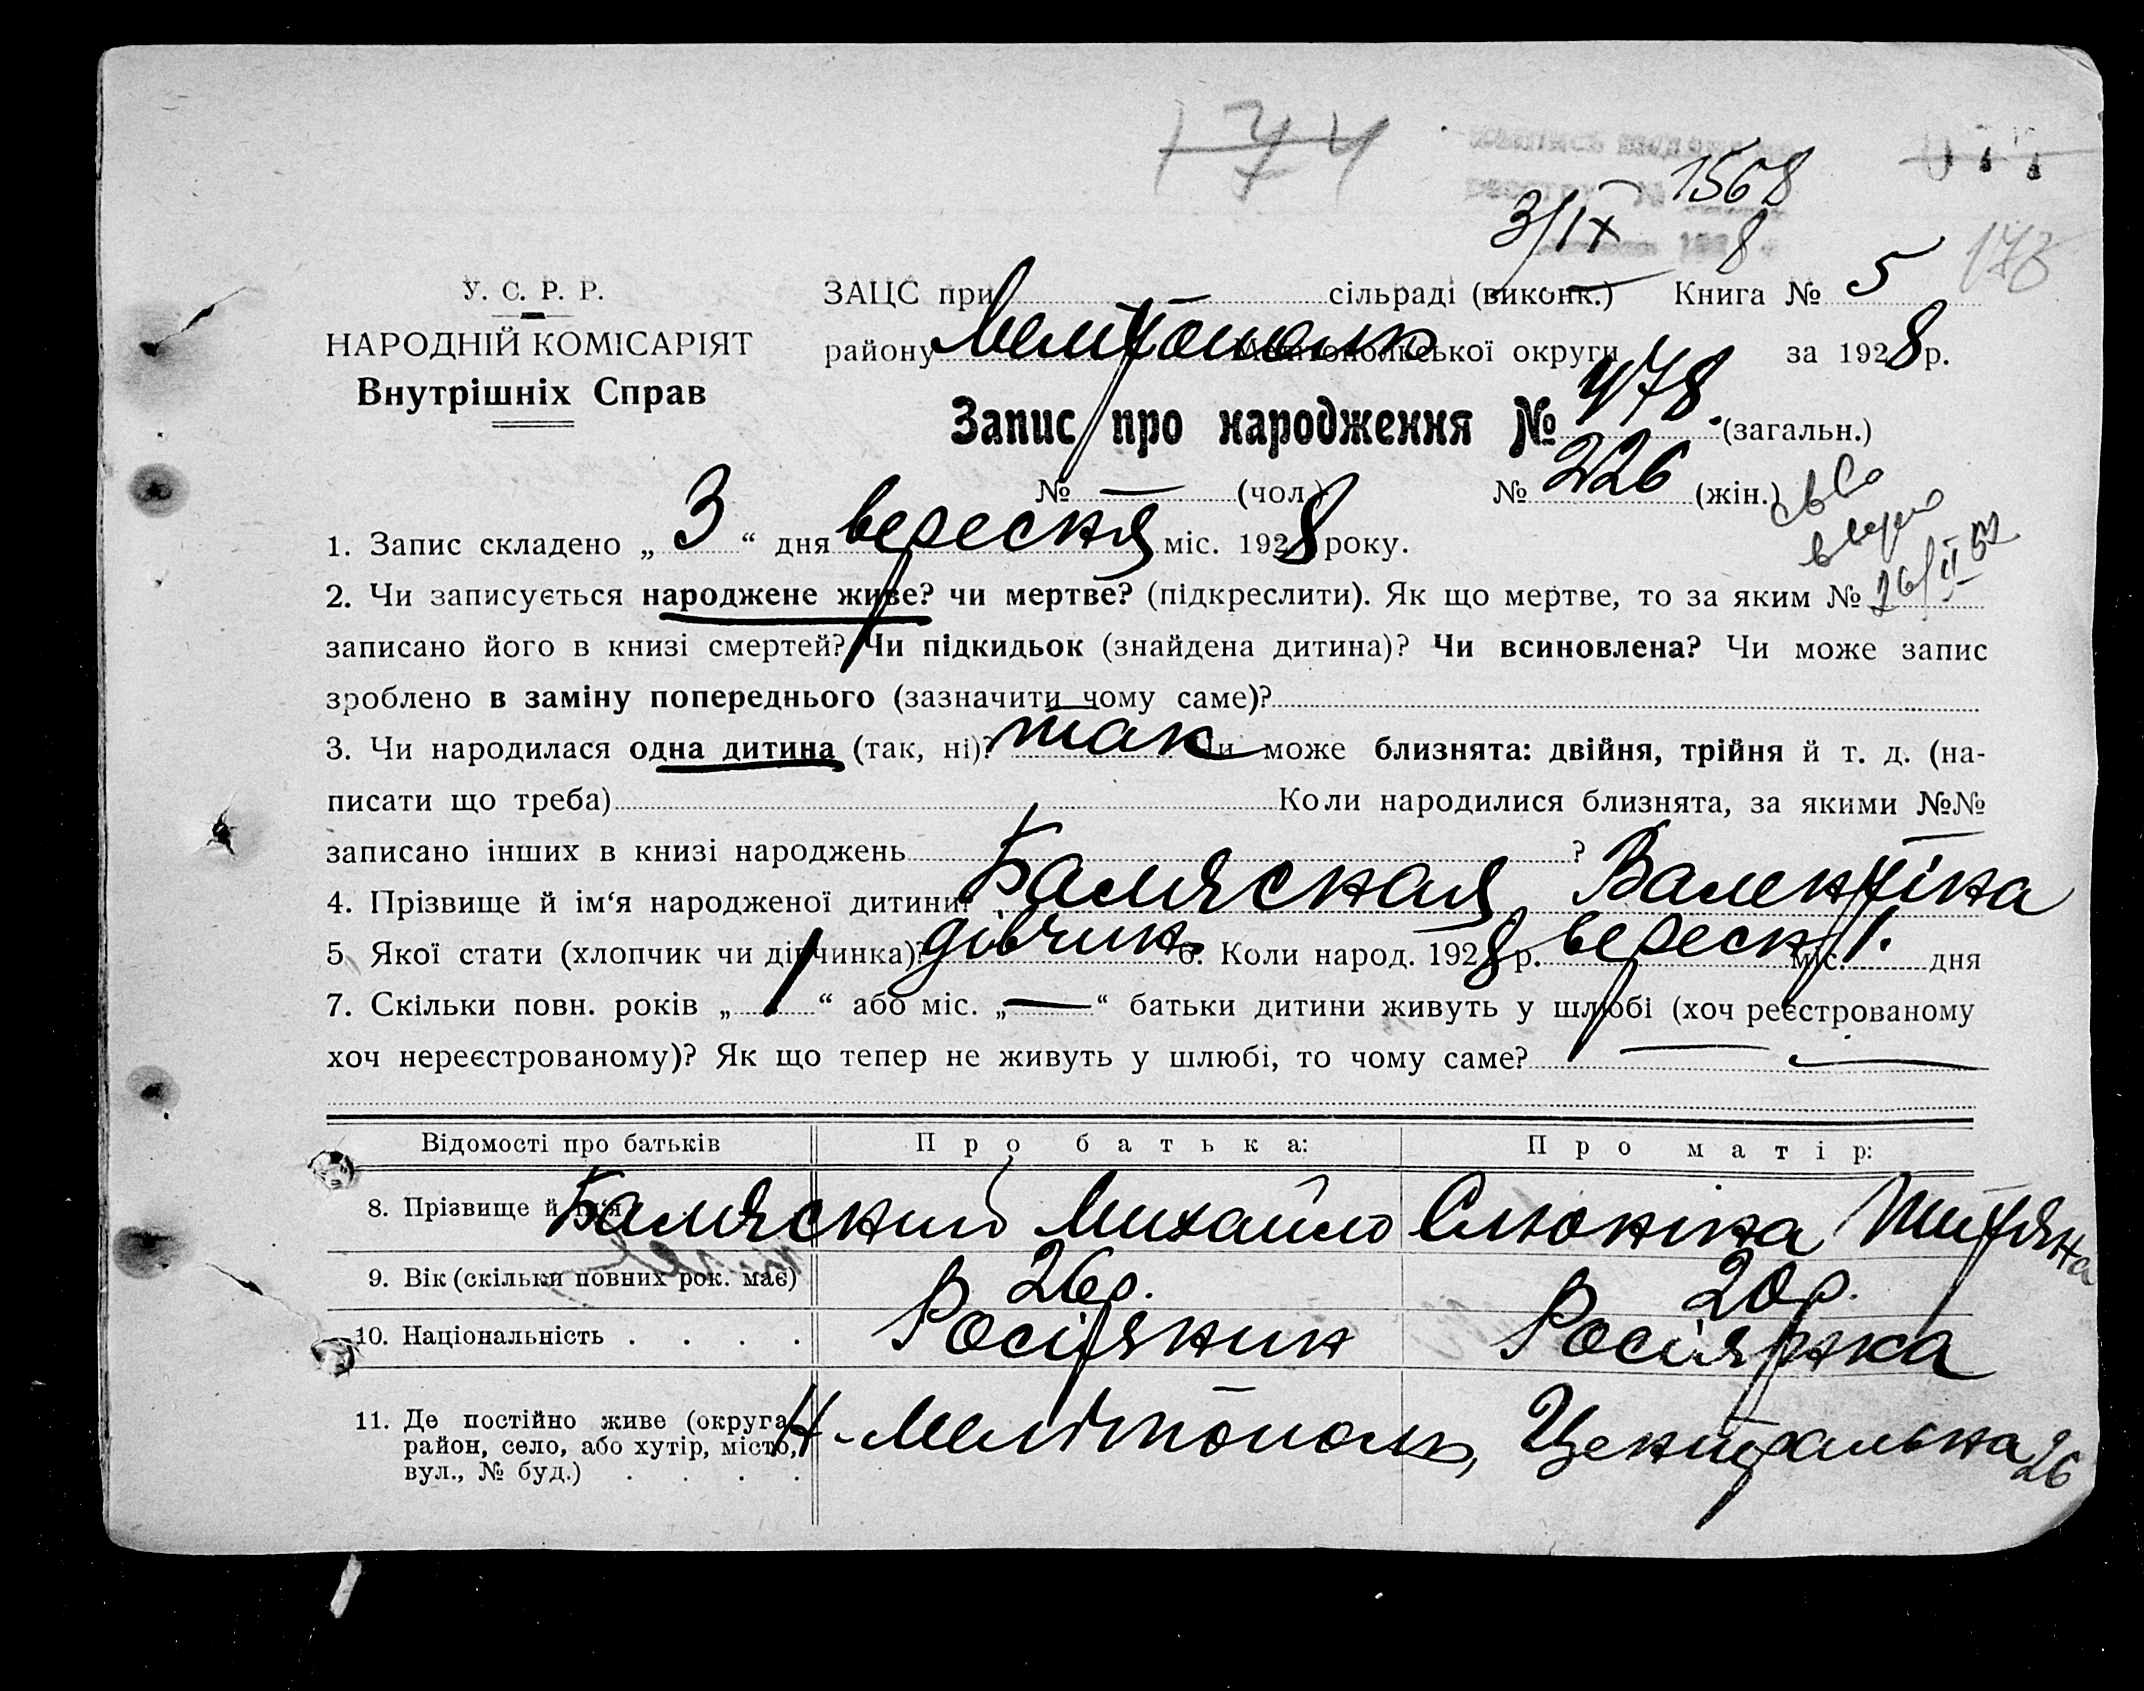 174
1568
3/IX 8
173
У. С. Р. Р.
НАРОДНІЙ КОМІСАРІЯТ
Внутрішніх Справ
ЗАЦС при сільраді (виконк.) Книга № 5
району Мелітополь Мелітопольської округи за 1928 р.
Запис про народження № 478 (загальн.)
№ — (чол.) № 226 (жін.)
26/II 52
1. Запис складено „ 3 “ дня вересня міс. 1928 року.
2. Чи записується народжене живе? чи мертве? (підкреслити). Як що мертве, то за яким №
записано його в книзі смертей? Чи підкидьок (знайдена дитина)? Чи всиновлена? Чи може запис
зроблено в заміну попереднього (зазначити чому саме)?
3. Чи народилася одна дитина (так, ні)? так Чи може близнята: двійня, трійня й т. д. (на-
писати що треба) Коли народилися близнята, за якими №№
записано інших в книзі народжень ?
4. Прізвище й ім‘я народженої дитини? Балясная Валентіна
5. Якої стати (хлопчик чи дівчинка)? дівчин. 6. Коли народ. 1928 р. вересня міс. 1. дня
7. Скільки повн. років „ 1 “ або міс. „ — “ батьки дитини живуть у шлюбі (хоч реєстрованому
хоч нереєстрованому)? Як що тепер не живуть у шлюбі, то чому саме? —
Відомості про батьків Про батька: Про матір:
8. Прізвище й ім‘я Баляский Михайло Слюніна
9. Вік (скільки повних рок. має) 26 р. 20 р.
10. Національність . . . . Росіяник Росіянка
11. Де постійно живе (округа,
район, село, або хутір, місто,
вул., № буд.) . . . . Н-Мелітополь, Центральна 26